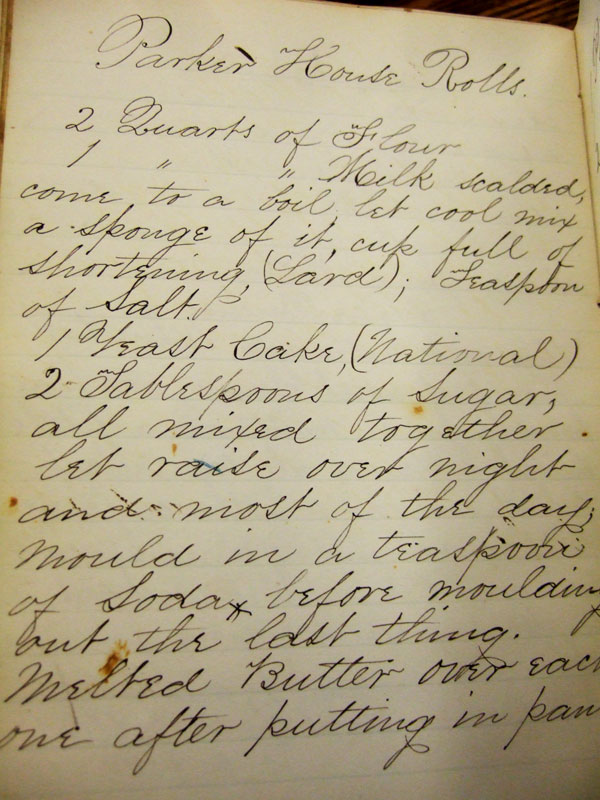 Parker House Rolls.
2 Quarts of Flour
1 " " Milk scalded,
come to a boil, let cool mix
a sponge of it, cup full of
shortening, (Lard); Teaspoon
of Salt.
1 Yeast Cake, (National)
2 Tablespoons of Sugar,
all mixed together
let raise over night
and most of the day;
mould in a teaspoon
of Soda, before moulding
out the last thing.
Melted Butter over each
one after putting in pan